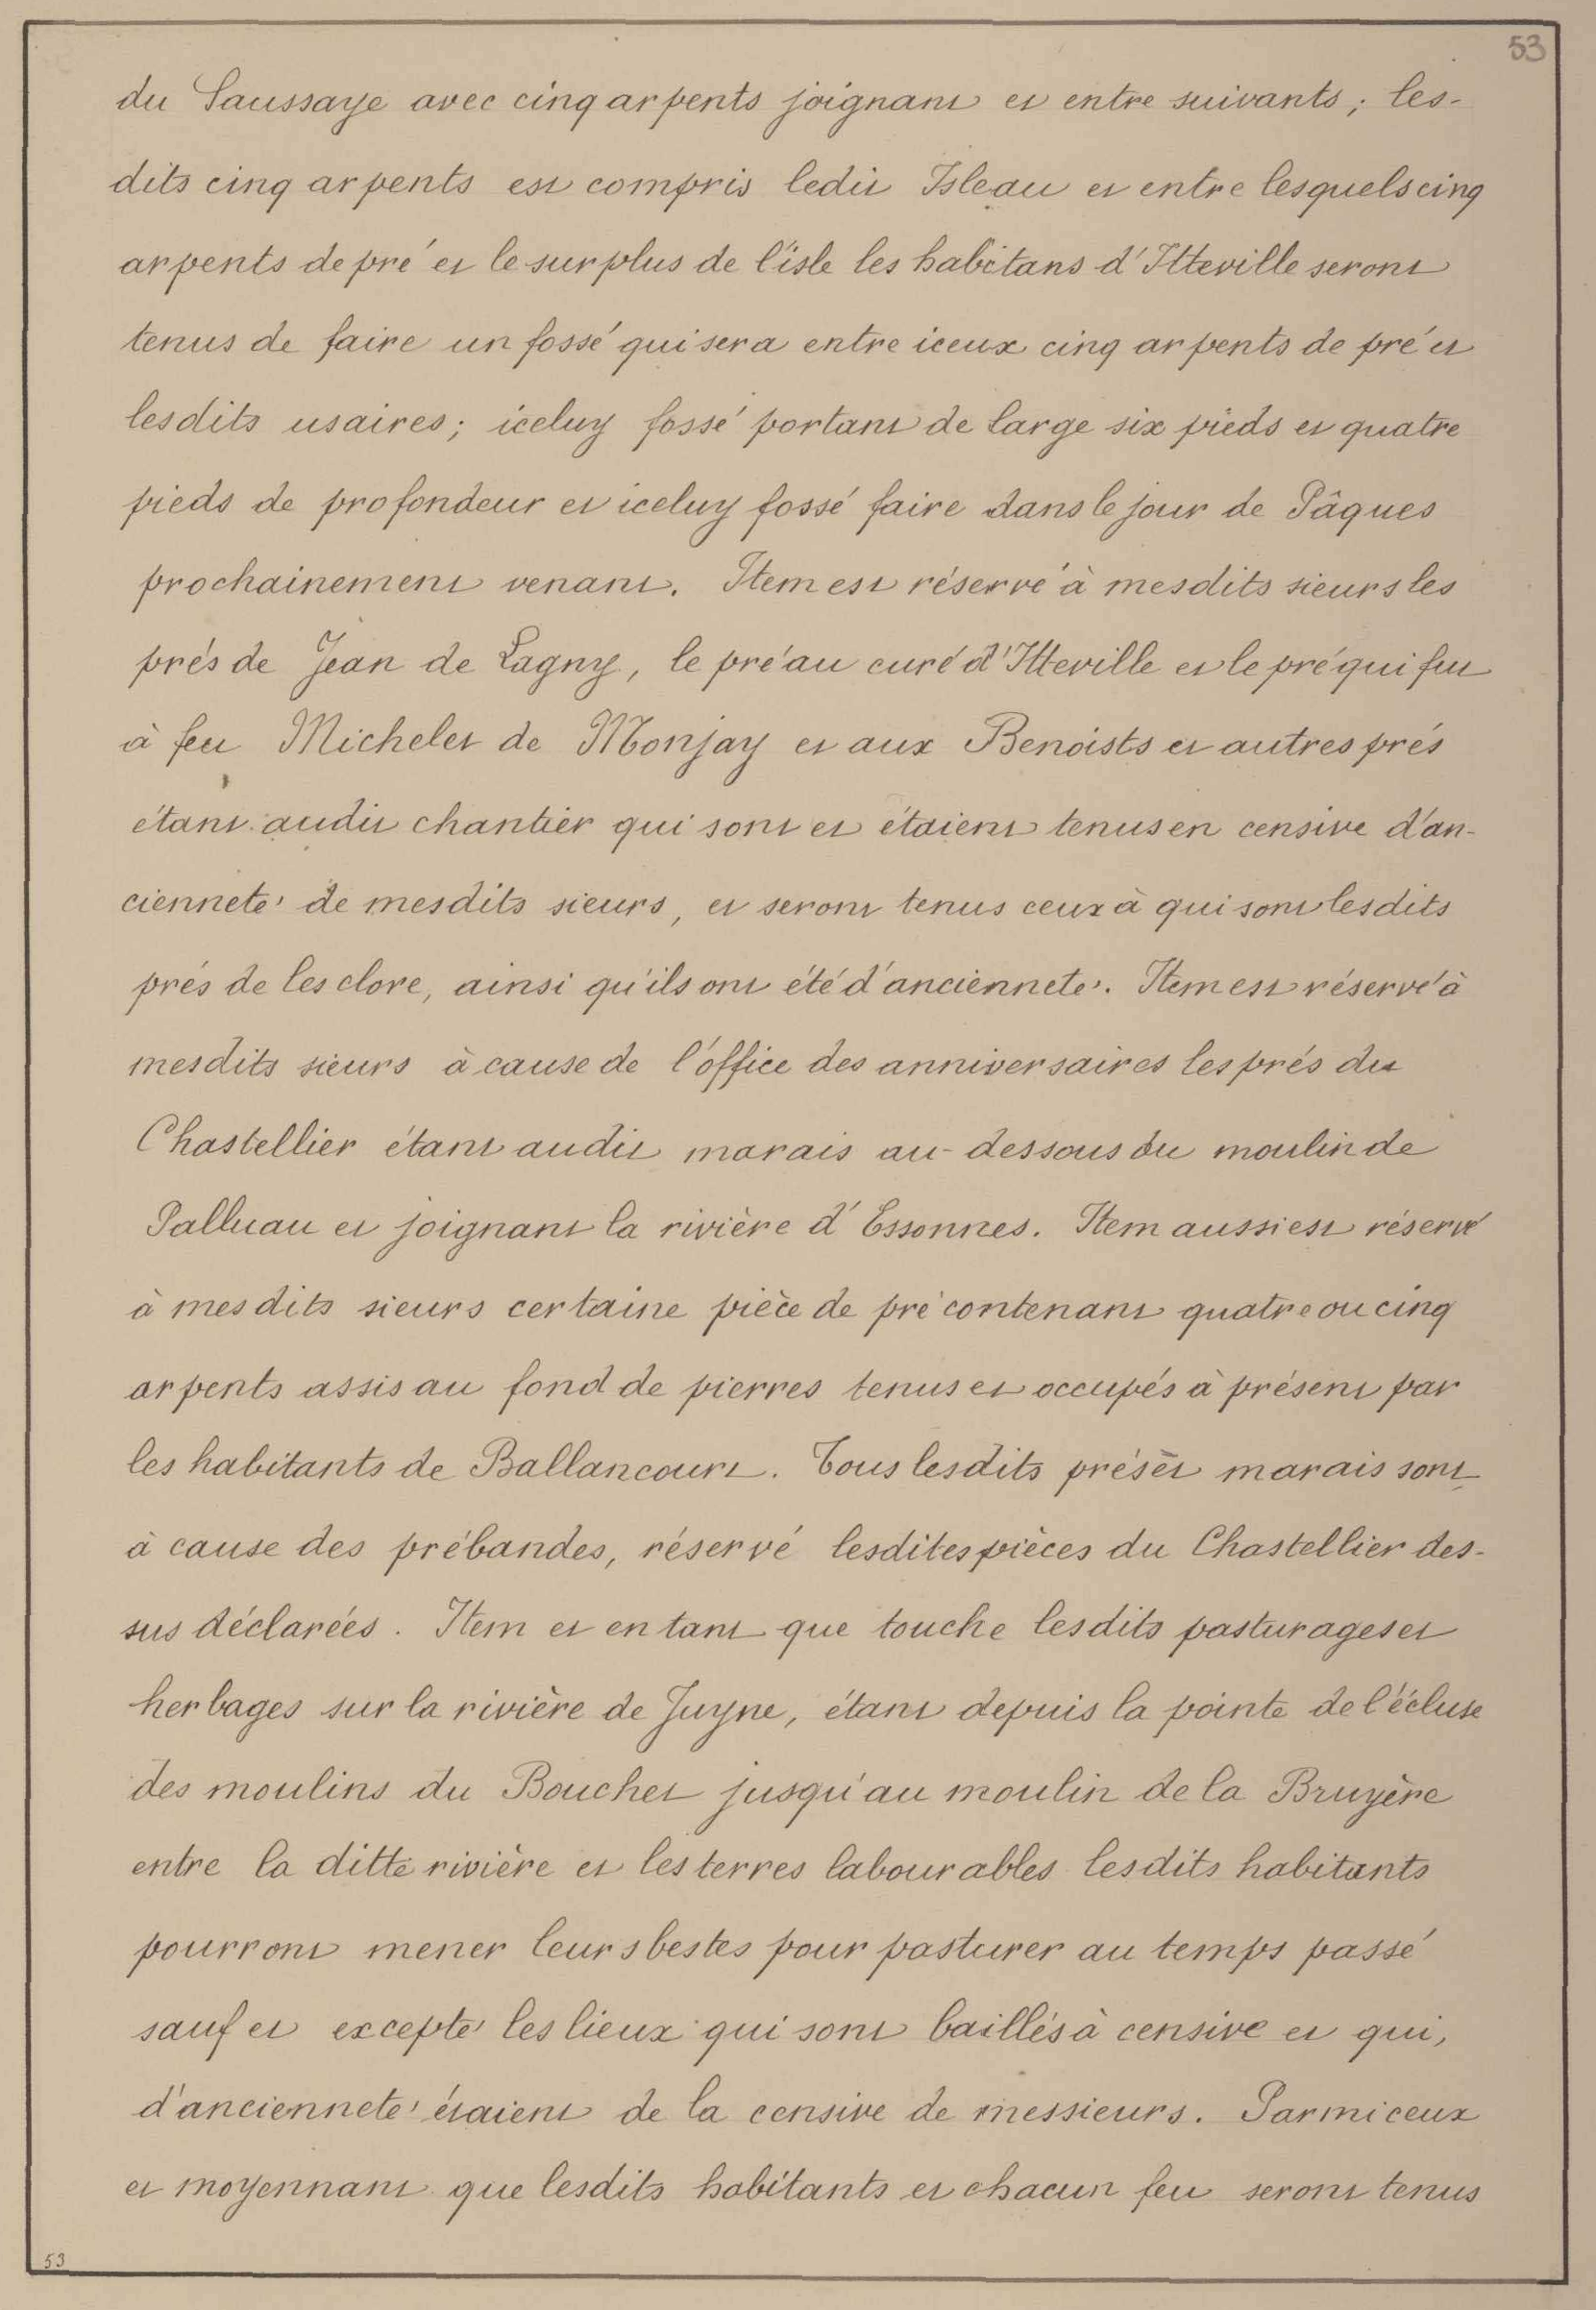 53
du Saussaye avec cinq arpents joignant et entre suivants ; les-
dits cinq arpents est compris ledit Isleau et entre lesquels cinq
arpents de pré et le surplus de l'isle les habitans d'Itteville seront
tenus de faire un fossé qui sera entre iceux cinq arpents de pré et
lesdits usaires ; iceluy fossé portant de large six pieds et quatre
pieds de profondeur et iceluy fossé faire dans le jour de Pâques
prochainement venant. Item est réservé à mesdits sieurs les
prés de Jean de Lagny, le pré au curé d'Itteville et le pré qui fut
à feu Michelet de Monjay et aux Benoists et autres prés
étant audit chantier qui sont et étaient tenus en censive d'an-
cienneté de mesdits sieurs, et seront tenus ceux à qui sont lesdits
prés de les clore, ainsi qu'ils ont été d'ancienneté. Item est réservé à
mesdits sieurs à cause de l'office des anniversaires les prés du
Chastellier étant audit marais au-dessous du moulin de
Palluau et joignant la rivière d'Essonnes. Item aussi est réservé
à mesdits sieurs certaine pièce de pré contenant quatre ou cinq
arpents assis au fond de pierres tenus et occupés à présent par
les habitants de Ballancourt. Tous lesdits prés et marais sont
à cause des prébandes, réservé lesdites pièces du Chastellier des-
sus déclarées. Item et en tant que touche lesdits pasturages et
herbages sur la rivière de Juyne, étant depuis la pointe de l'écluse
des moulins du Bouchet jusqu'au moulin de la Bruyère
entre la ditte rivière et les terres labourables lesdits habitants
pourront mener leurs bestes pour pasturer au temps passé
sauf et excepté les lieux qui sont baillés à censive et qui,
d'ancienneté étaient de la censive de messieurs. Parmi ceux
et moyennant que lesdits habitants et chacun feu seront tenus
53